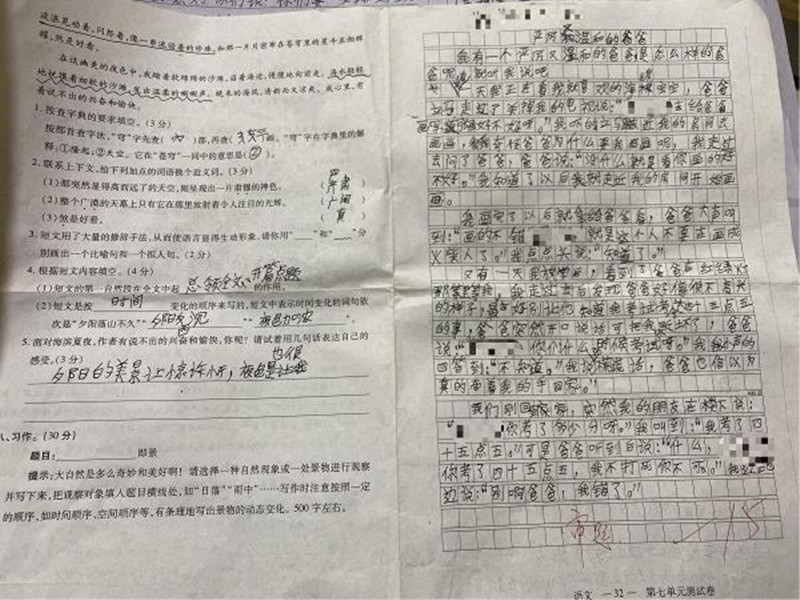 波浪晃动着，闪烁着，像一串流动着的珍珠，和那一片片密布在苍穹里的星斗互相辉
映，煞是好看。
在这幽美的夜色中，我踏着软绵绵的沙滩，沿着海边，慢慢地向前走。海水轻轻
地抚摸着细软的沙滩，发出温柔的唰唰声。晚来的海风，清新而又凉爽。我心里，有
着说不出的兴奋和愉快。
1. 按查字典的要求填空。(3分)
按部首查字法，“穹”字先查( 穴 )部，再查( 3 )画。“穹”字在字典里的解
释：①隆起；②天空。它在“苍穹”一词中的意思是( ② )。
2. 联系上下文，给下列加点的词语换个近义词。(3分)
(1)都突然显得高而远了的天空，则呈现出一片肃穆的神色。 ( 严肃 )
(2)整个广漠的天幕上只有它在那里放射着令人注目的光辉。 ( 广阔 )
(3)煞是好看。 ( 真 )
3. 短文用了大量的修辞手法，从而使语言显得生动形象，请你用“ ”和“ ”分
别画出一个比喻句和一个拟人句。(2分)
4. 根据短文内容填空。(4分)
(1)短文的第一自然段在全文中起 总领全文，开篇点题 的作用。
(2)短文是按 时间 变化的顺序来写的，短文中表示时间变化的词句依
次是“夕阳落山不久”“夕阳西沉”“夜色加浓”
5. 面对海滨夏夜，作者有说不出的兴奋和愉快，你呢？请试着用几句话表达自己的
感受。(3分)
夕阳的美景让 ，夜色 让我
也很
八、习作。(30分)
题目：即景
提示：大自然是多么奇妙和美好啊！请选择一种自然现象或一处景物进行观察
并写下来，把观察对象填入题目横线处，如“日落”“雨中”……写作时注意按照一定
的顺序，如时间顺序、空间顺序等，有条理地写出景物的动态变化。500字左右。
严厉又温和的爸爸
我有一个严厉又温和的爸爸是怎么样的爸
爸呢 听我说吧
天我正在看我喜欢的 ，爸爸
立马走过了关掉我的电视说：“ 去给爸爸
画 好不好呀。”我吓的立马 近我的房间去
画画， 奇怪爸爸为什么要我画画呢，我走过
去问了爸爸，爸爸说：“没什么就是看你画的好
不好。”我知道了以后我就走近我的房间开始画
画。
我画完了以后就拿给爸爸看，爸爸大声呐
到：“画的不错 就是这个人不要在画成
火柴人了。”我点点头说：“知道了。”
又有一天我 ，看到了爸爸
，我走过去后发现爸爸好像很不高兴
的样子， 好别让他知道我考试考 四十五点五
的事，爸爸突然开口说话可把我 坏了，爸爸
说“ 你 什么时候考试呀。”我 小声的
四答到：“不知道。”我说 话，爸爸也信以为
真的 着我的手回家。
我们刚回 家，突然我的朋友走 下说：
“ 你考了多少分呀。”我叫到：“我考了四
十五点五。”可是爸爸听到 说：“什么，
你考了四十五点五，我不打死你不可。”我
边说：“别啊爸爸，我错了。”
审题
-15
语文 —32— 第七单元测试卷